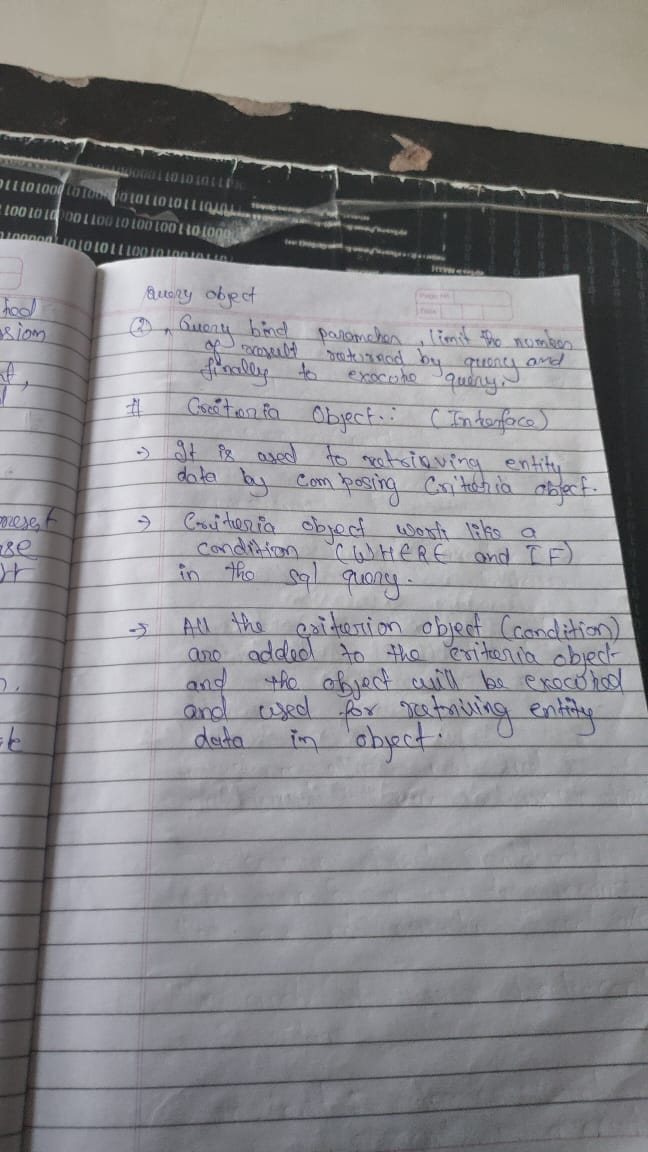 Query object
② Query bind paramehen, limit the number
of result returned by query and
finally to execute query.
# Criteria Object.: (Interface)
→ It is used to retrieving entity
data by composing Criteria object.
→ Criteria object work like a
condition (WHERE and IF)
in the sql query.
→ All the criterion object (condition)
are added to the criteria object
and the object will be executed
and used for retriving entity
data in object.